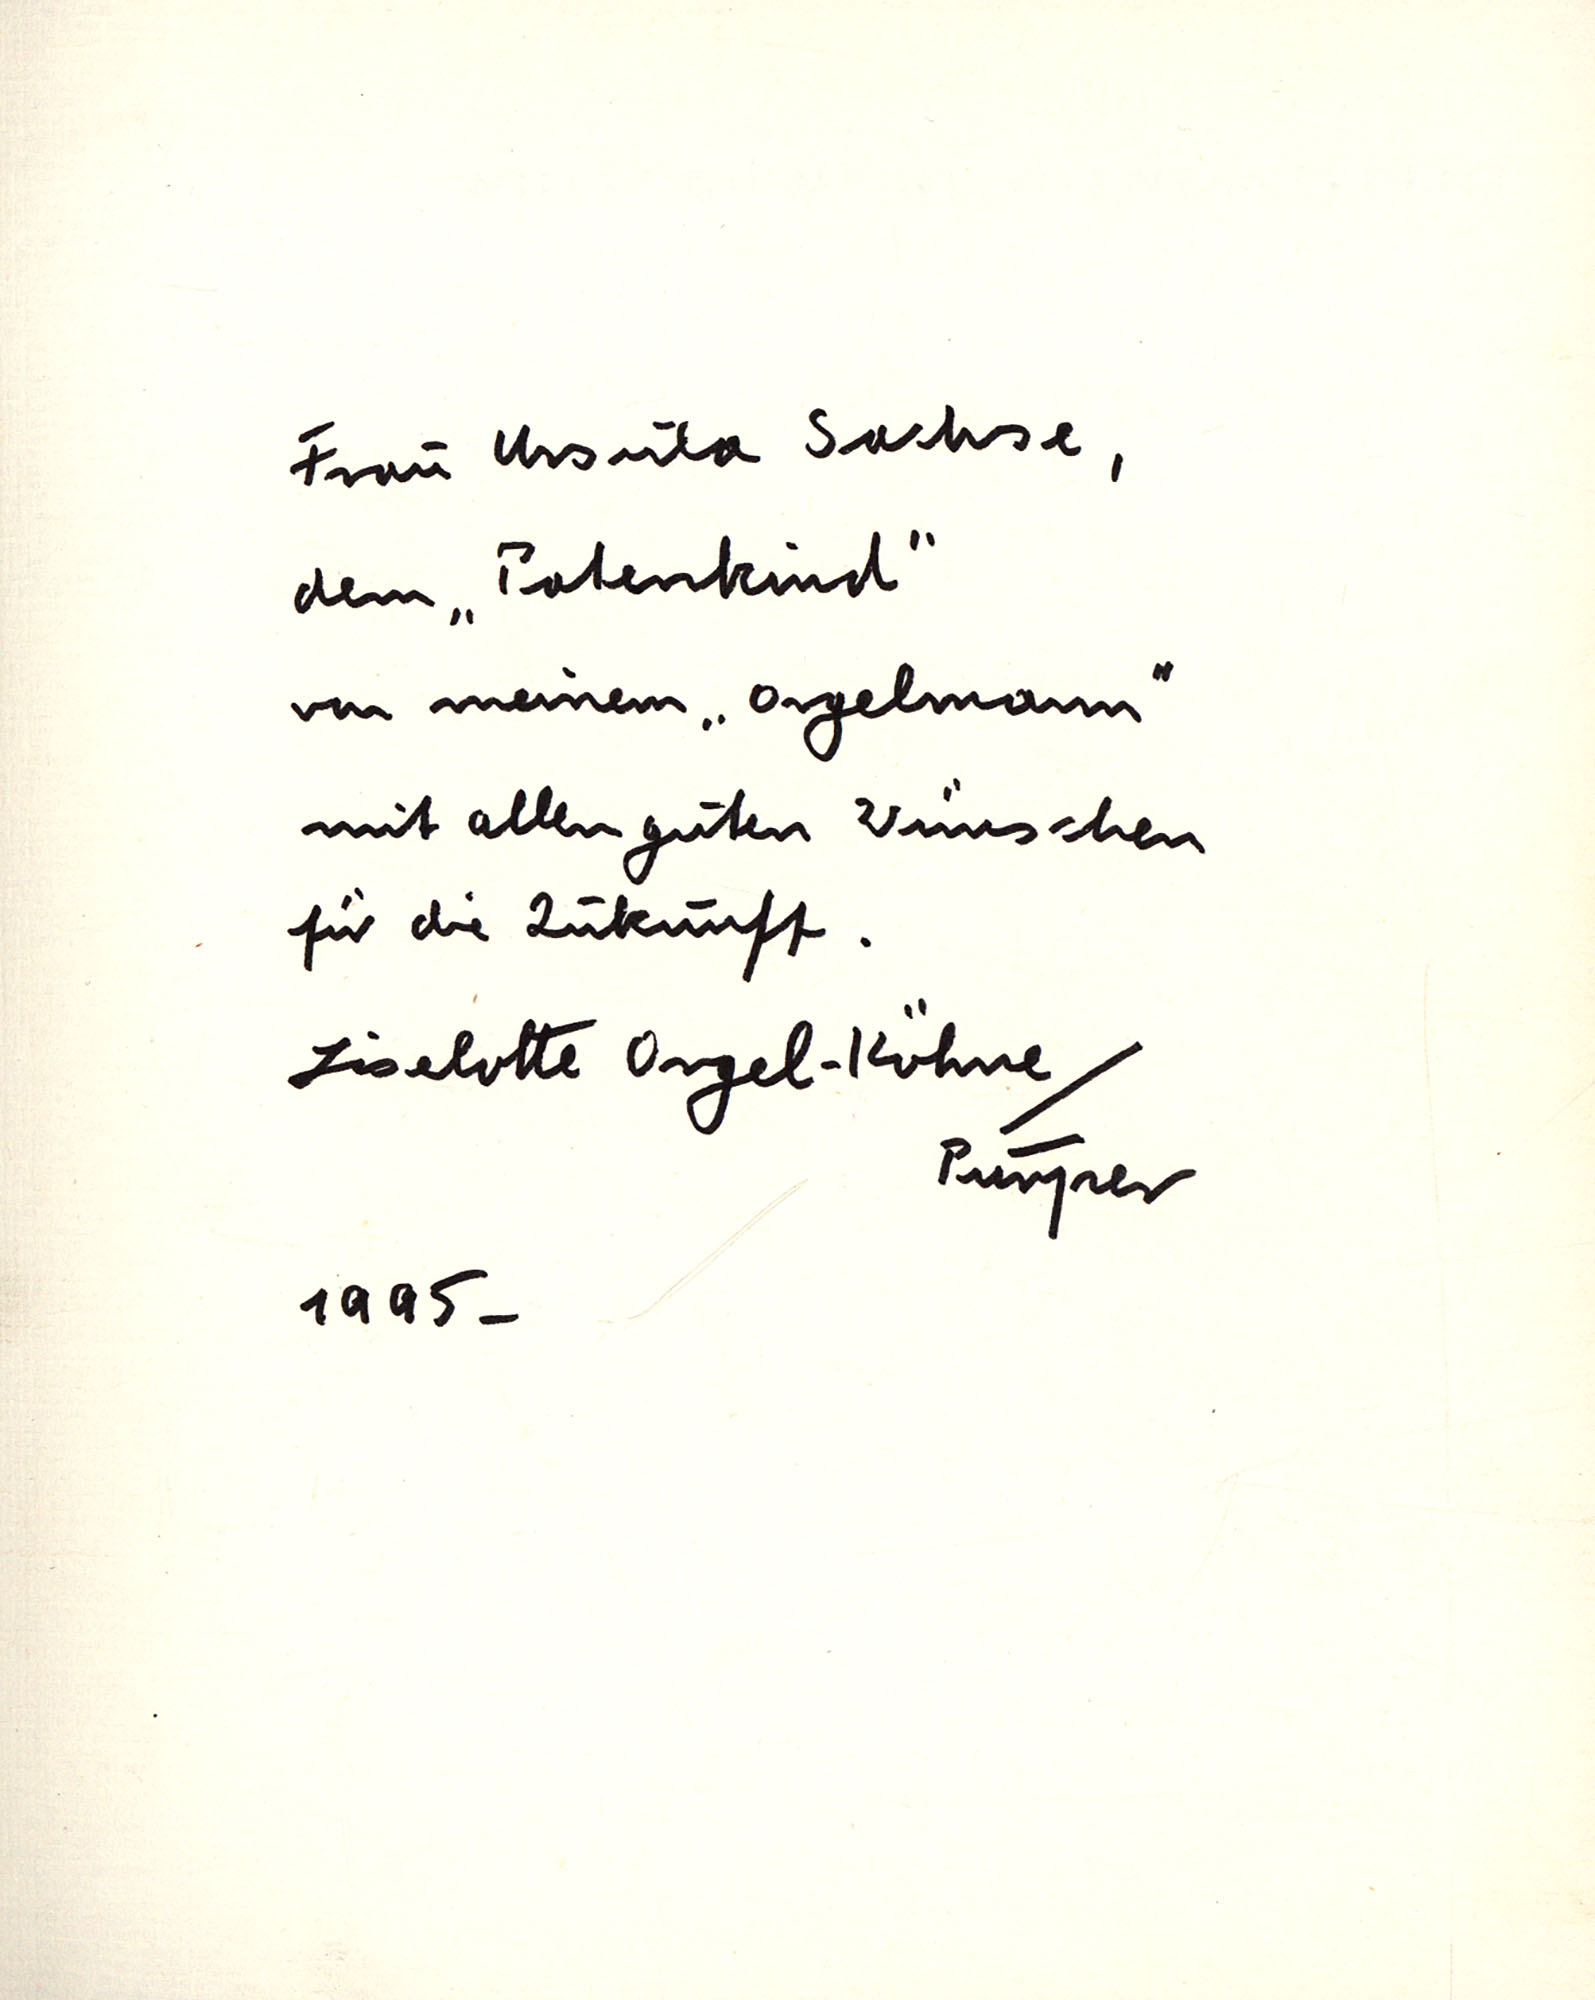 Frau Ursula Sachse,
dem „Patenkind“
von meinem „Orgelmann“
mit allen guten Wünschen
für die Zukunft.
Liselotte Orgel-Köhne/
Purper
1995-